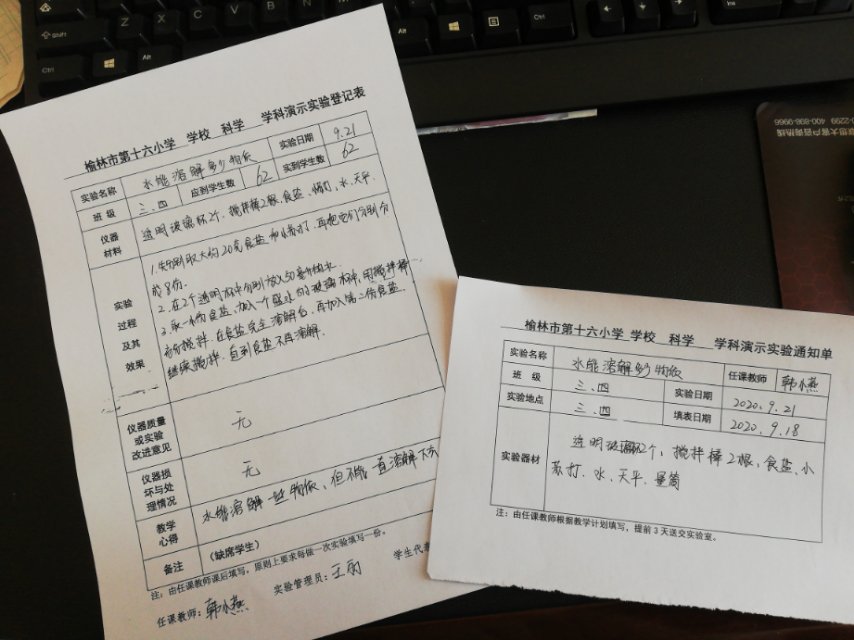 榆林市第十六小学 学校 科学 学科演示实验登记表
实验名称 水能溶解多少物质 实验日期 9.21
班 级 三、四 应到学生数 62 实到学生数 62
仪器材料 透明玻璃杯2个、搅拌棒2根、食盐、水、天平、
实验过程及其效果
1.分别取大约20克食盐和小苏打,再把它们分别分
成8份.
2.在2个透明杯中分别放入50毫升
3.取一份食盐,加入一个盛水的玻璃杯中,用搅拌棒
搅拌.在食盐完全溶解后,再加入第二份食盐.
继续搅拌.直到食盐不再溶解.
仪器质量或实验改进意见 无
仪器损坏与处理情况 无
教学心得 水能溶解一些物质,但不能一直溶解下去
备注 (缺席学生)
注:由任课教师课后填写,原则上要求每做一次实验填写一份。
任课教师:韩小燕 实验管理员:王雨 学生代表
榆林市第十六小学 学校 科学 学科演示实验通知单
实验名称 水能溶解多少物质 任课教师 韩小燕
班 级 三、四 实验日期 2020.9.21
实验地点 三、四 填表日期 2020.9.18
实验器材 透明玻璃杯2个,搅拌棒2根,食盐、小
苏打、水、天平、量筒
注:由任课教师根据教学计划填写,提前3天送交实验室。
Shift
Z
X
C
V
B
N
Ctrl
Alt
Ctrl
Ins
400-898-0966